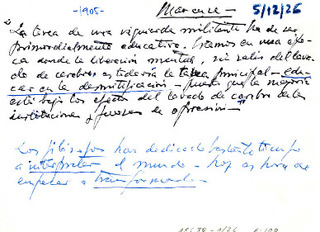 -1905- Marcuse - 5/12/26
"La tarea de una vanguardia militante ha de ser
primordialmente educativa. Estamos en una épo-
ca donde la liberación mental, sin salirse del lava-
do de cerebros es todavía la tarea principal - edu-
car en la desmitificación - puesto que la mayoría
está bajo los efectos del lavado de cerebro de las
instituciones y fuerzas de opresión -"
Los filósofos han dedicado bastante tiempo
a interpretar el mundo - hoy es hora de
empezar a transformarlo -